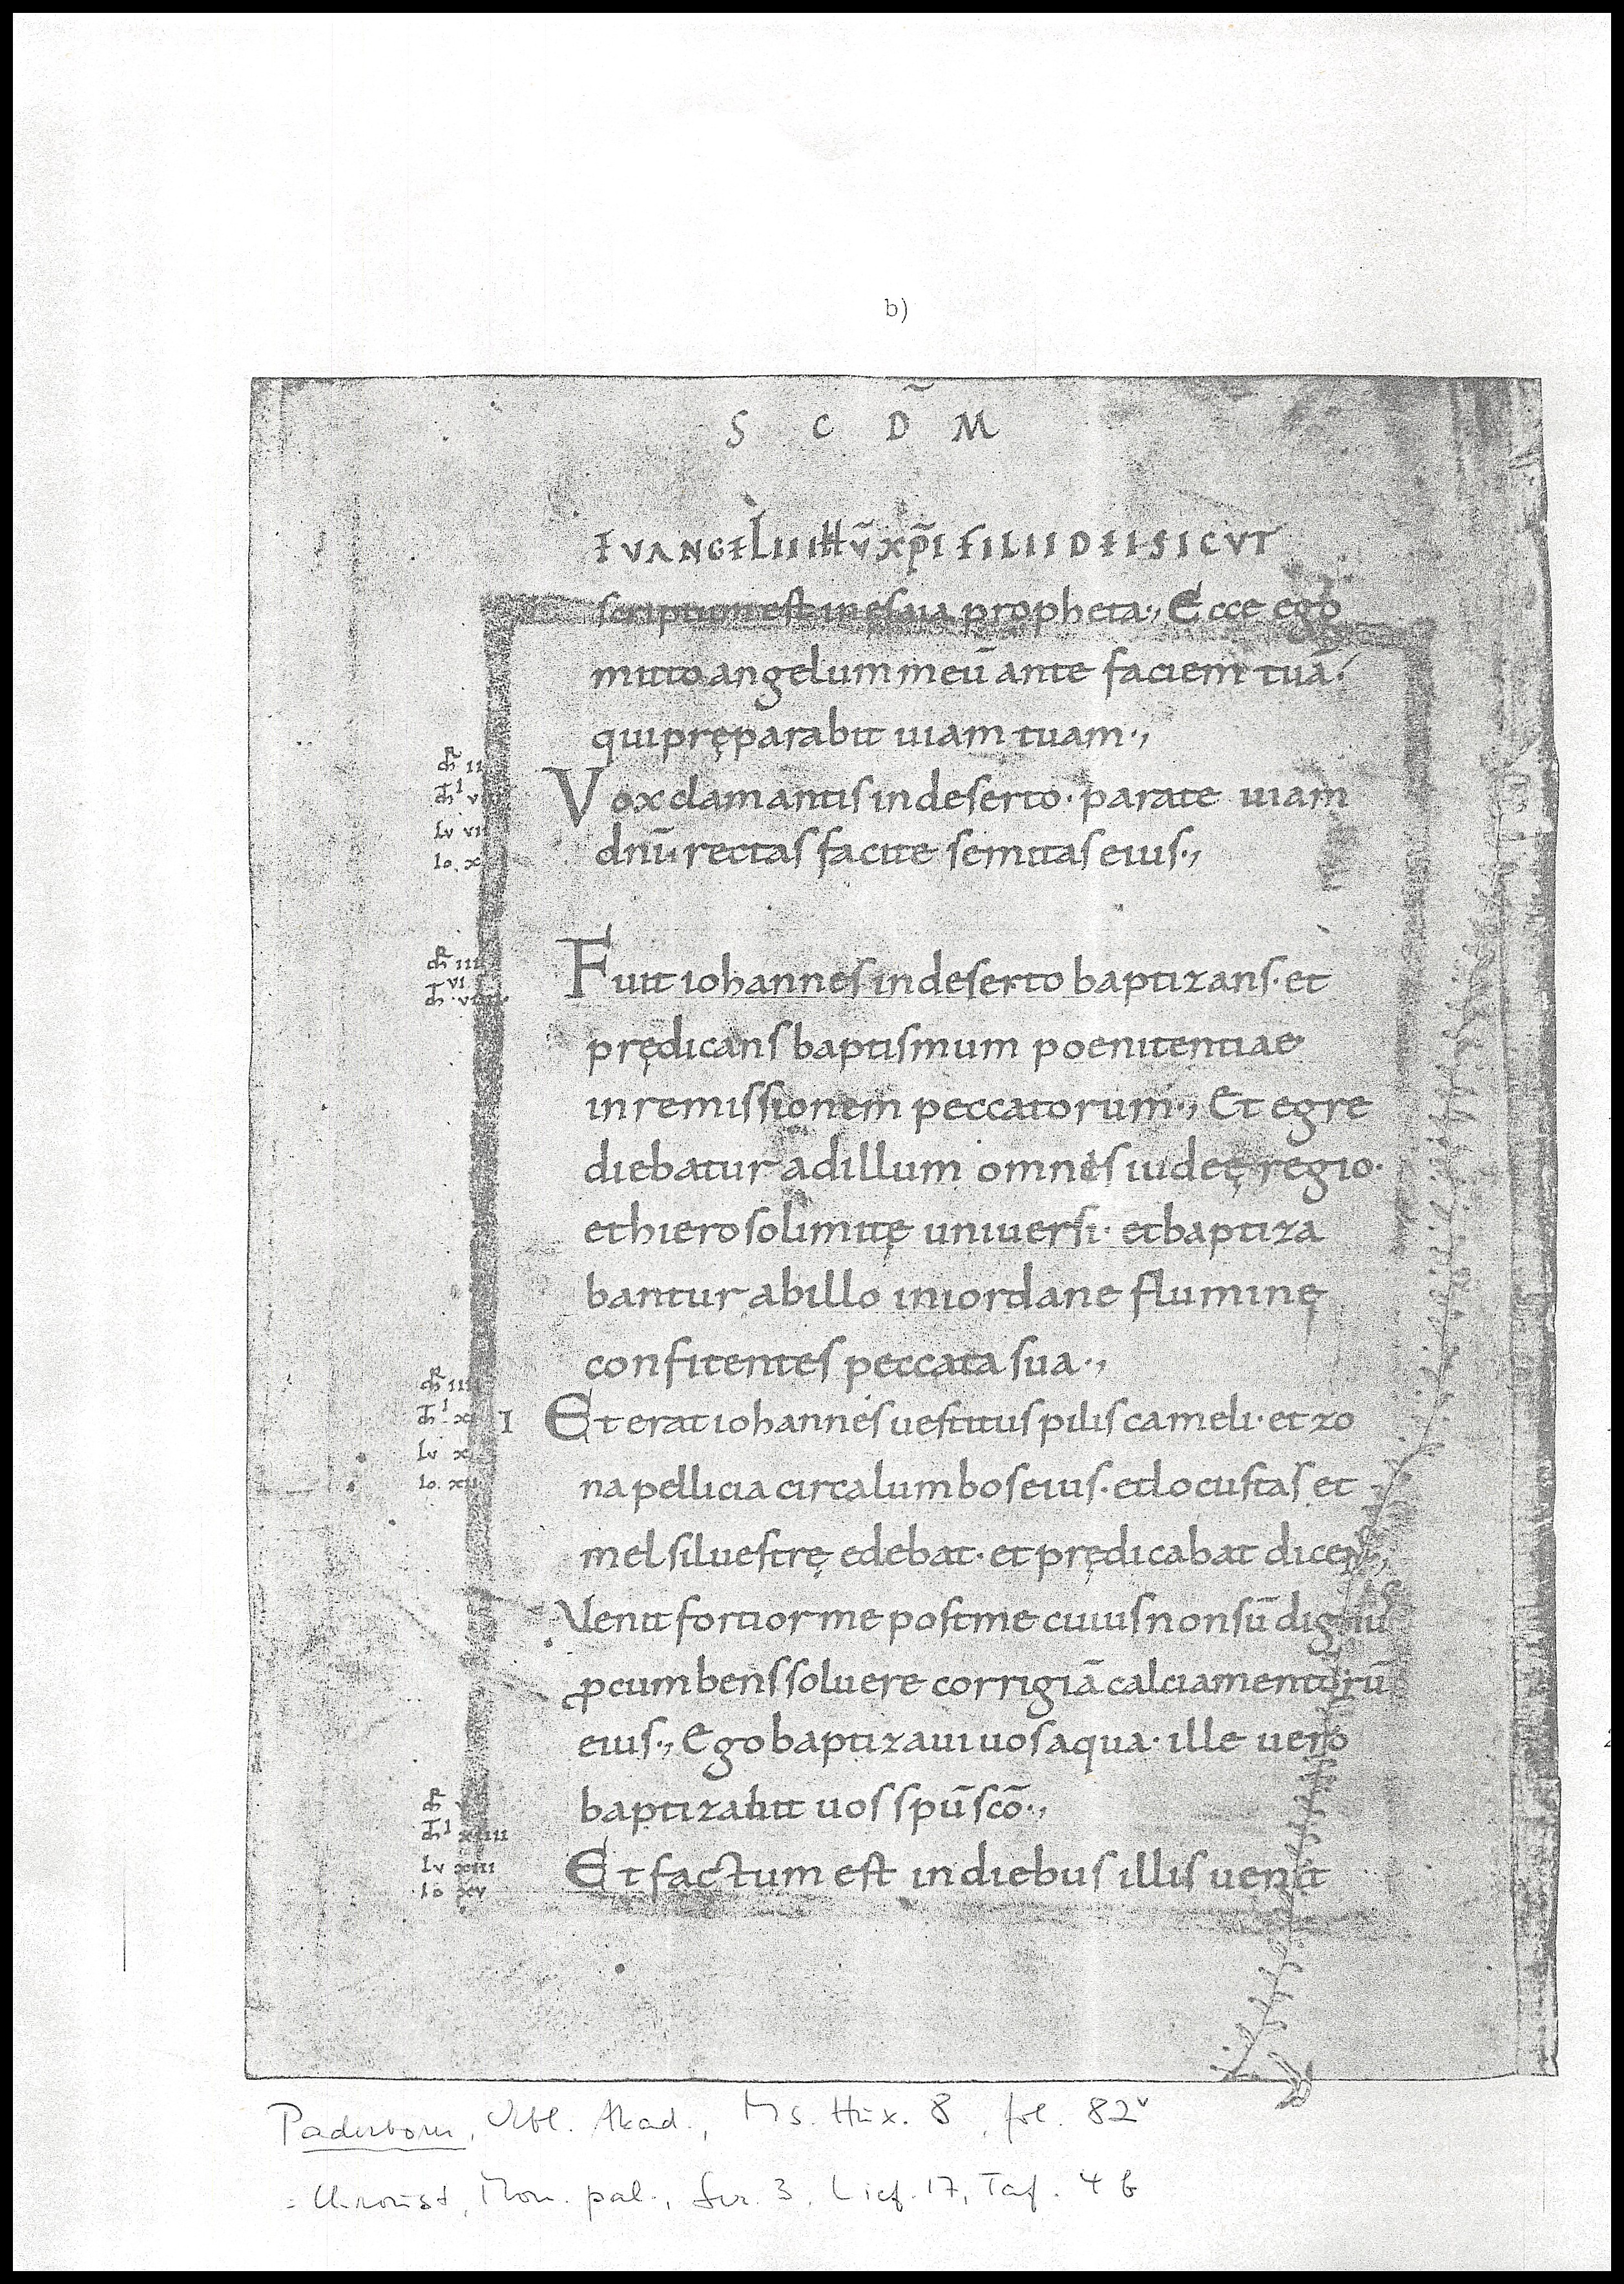 b)
S C D̄ M
EVANGELII IHŪ XP̄I FILII DEI SICVT
scriptum est in esaia propheta., Ecce ego
mitto angelum meū ante faciem tuā.
qui pręparabit uiam tuam.,
m̄r II
Vox clamantis in deserto. parate uiam
lv VII
dn̄i. rectas facite semitas eius.,
io. X
m̄r III
Fuit iohannes in deserto baptizans. et
prędicans baptismum poenitentiae
in remissionem peccatorum., Et egre
diebatur ad illum omnes iudeę regio.
et hierosolimitę uniuersi. et baptiza
bantur ab illo in iordane fluminę
confitentes peccata sua.,
I Et erat iohannes uestitus pilis cameli. et zo
lv X
na pellicia circa lumbos eius. et locustas et
mel siluestrę edebat. et prędicabat dicens.,
Uenit fortior me post me cuius non sū dignus
ꝓcumbens soluere corrigiā calciamentorū
eius., Ego baptizaui uos aqua. ille uero
baptizabit uos spū scō.,
lv XIII
Et factum est in diebus illis uenit
io XV
Paderborn, Bibl. Akad., Ms. Hux. 8, fol. 82v
= Chroust, Mon. pal., Ser. 3, Lief. 17, Taf. 4 b